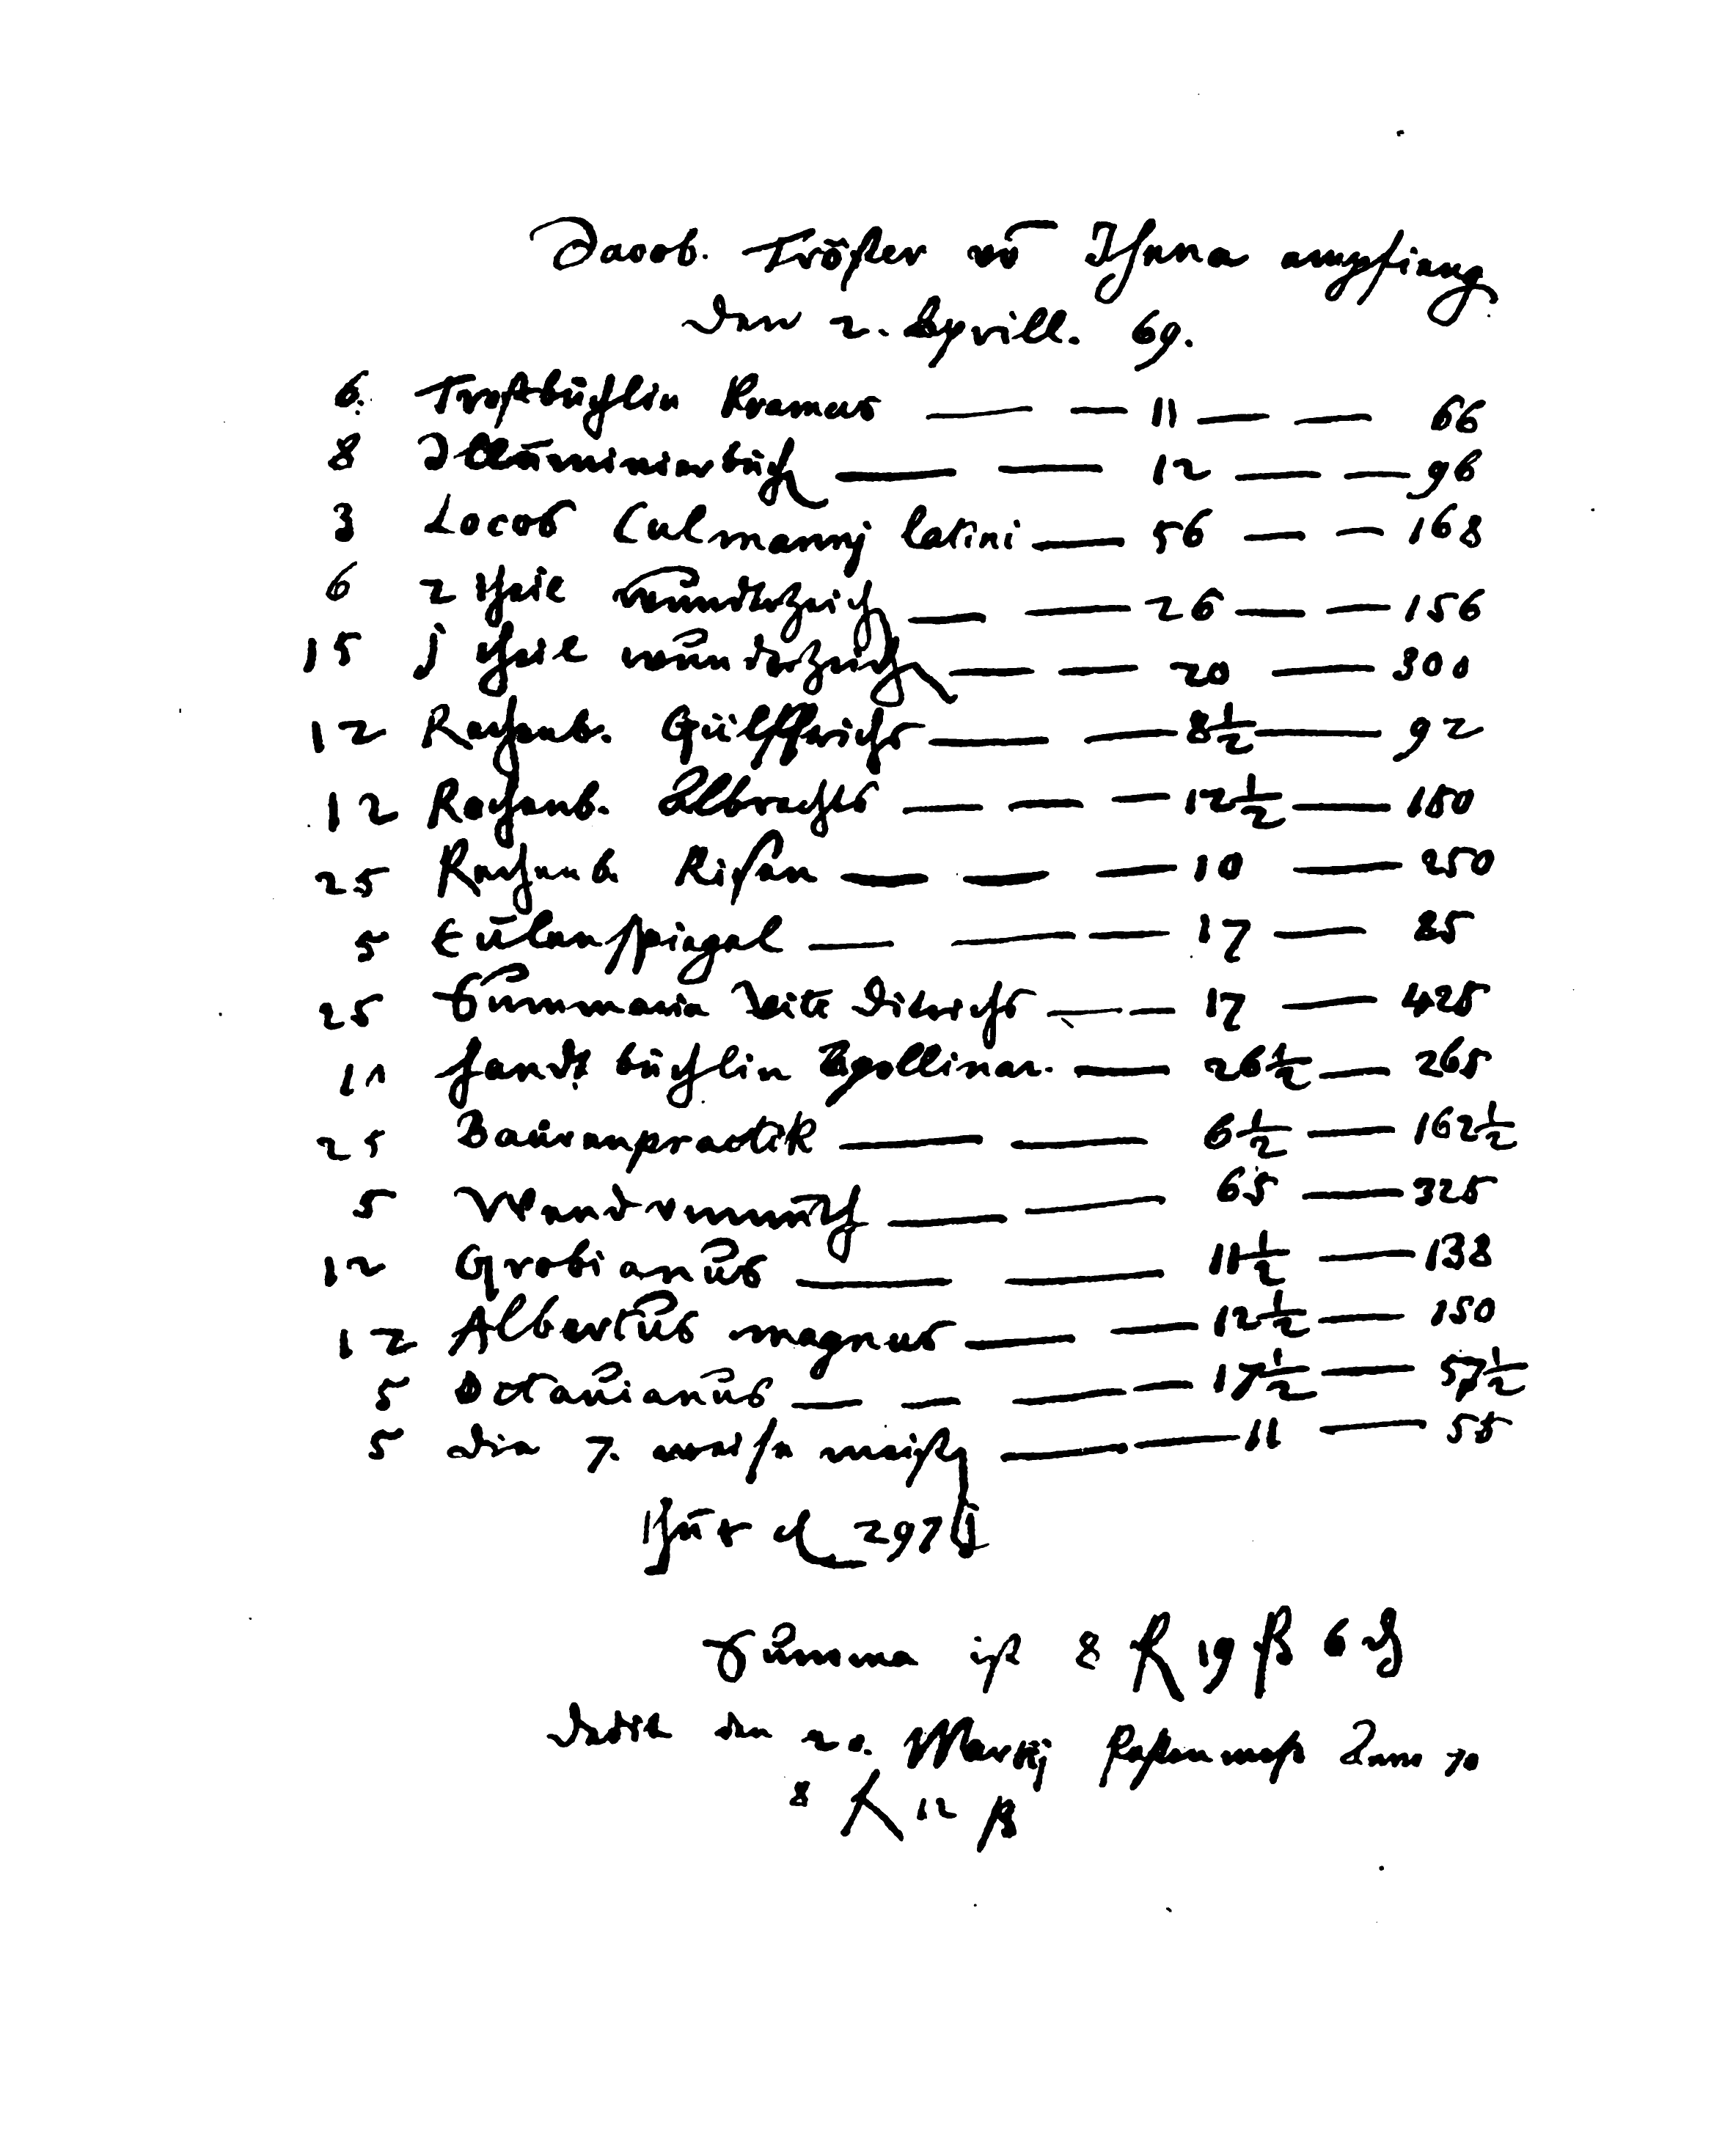 Jacob. Tröster vō Jhena empfieng
den 2. Apprill. 69.
6. Trostbüchlin Kramers — — 11 — — 66
8 Illūminierbūch — — 12 — — 96
3 Locos Culmannj latini — 56 — — 168
6 2 theil wūnderzeich — — 26 — — 156
15 j theil wūnderzeich — — 20 — 300
12 Rechenb. Gülfferichs — — 8½ — 92
12 Rechenb. Albrechts — — — 12½ — 150
25 Rechenb. Risen — — — 10 — 250
5 Eūlenspiegel — — — 17 — 85
25 Sūmmaria Veit Ditrichs — — 17 — 425
10 Handtbüchlin Apollinar. — 26½ — 265
25 Baūrenpractik — — 6½ — 162½
5 Wendvnmūth — — 65 — 325
12 Grobianūs — — 11½ — 138
12 Albertūs magnus — — 12½ — 150
5 Octaūianūs — — — — 17½ — 57½
5 die 7. weise meister — — 11 — 55
thūt 297
Sūmma ist 8 fl 19 ß 6 ₰
dedit den 20. Martij Fastenmess Anno 70
8 fl 12 ß